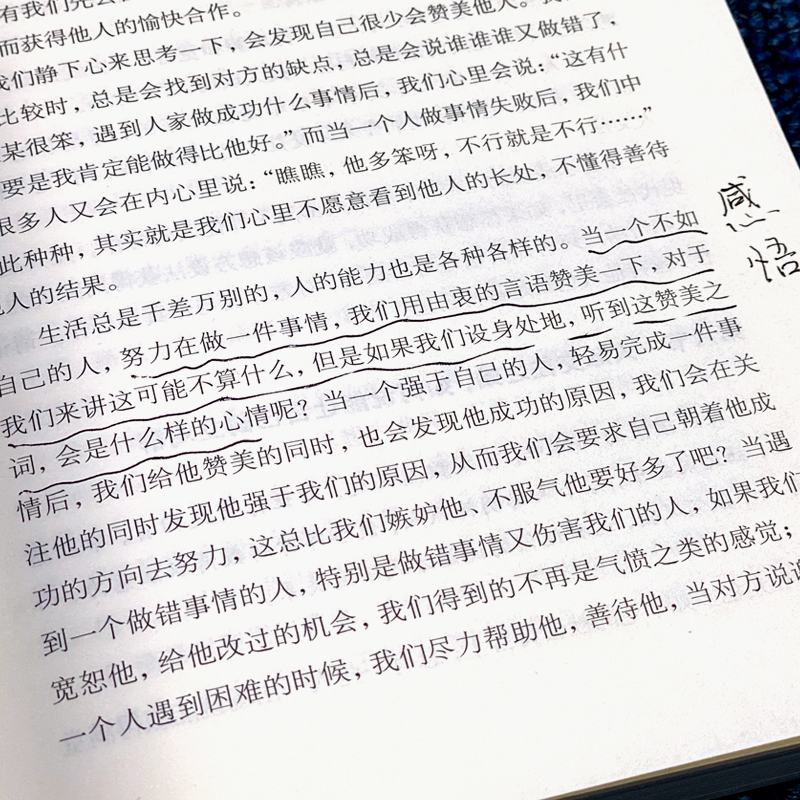 有我们先
而获得他人的愉快合作。
我们静下心来思考一下，会发现自己很少会赞美他人。
比较时，总是会找到对方的缺点，总是会说谁谁谁又做错了，
某很笨，遇到人家做成功什么事情后，我们心里会说：“这有什
要是我肯定能做得比他好。”而当一个人做事情失败后，我们中
很多人又会在内心里说：“瞧瞧，他多笨呀，不行就是不行……”
此种种，其实就是我们心里不愿意看到他人的长处，不懂得善待
他人的结果。
生活总是千差万别的，人的能力也是各种各样的。当一个不如
自己的人，努力在做一件事情，我们用由衷的言语赞美一下，对于
我们来讲这可能不算什么，但是如果我们设身处地，听到这赞美之
词，会是什么样的心情呢？当一个强于自己的人，轻易完成一件事
情后，我们给他赞美的同时，也会发现他成功的原因，我们会在关
注他的同时发现他强于我们的原因，从而我们会要求自己朝着他成
功的方向去努力，这总比我们嫉妒他、不服气他要好多了吧？当遇
到一个做错事情的人，特别是做错事情又伤害我们的人，如果我们
宽恕他，给他改过的机会，我们得到的不再是气愤之类的感觉；
一个人遇到困难的时候，我们尽力帮助他，善待他，当对方说谢
感
悟